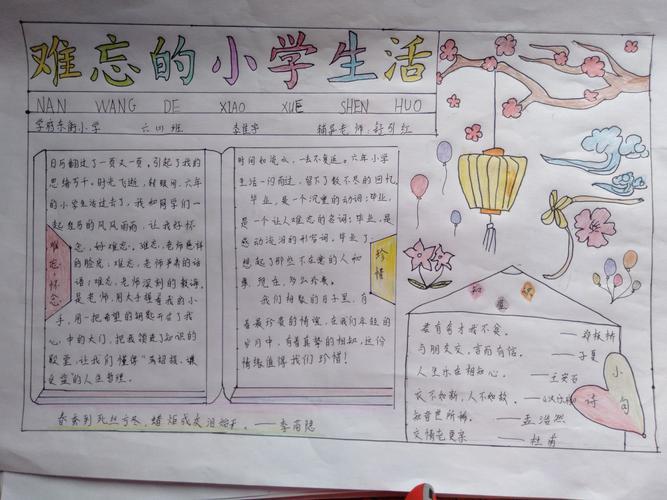 难忘的小学生活
NAN WANG DE XIAO XUE SHEN HUO
学府东街小学 六四班 李佳宇 辅导老师:舒引红
日历翻过了一页又一页,引起了我的
思绪万千。时光飞逝,转眼间,六年
的小学生活过去了。我和同学们一
起
的风风雨雨,让我好怀
念,好难忘。难忘,老师慈祥
的脸宠,难忘,老师
的话
语;难忘,老师深刻的教诲。
是老师,用大手握着我的小
手,用一把希望的钥匙开启了我
心中的大门,把我领进了知识的
殿堂,让我们懂得
的人生哲理。
难忘怀念
时间如流水,一去不复返。六年小学
生活一闪而过,留下了数不尽的回忆。
毕业,是一个沉重的动词;毕业,
是一个让人难忘的名词;毕业,是
感动流泪的形容词。毕业了,
想起了那些不在意的人和
事,现在,多么珍贵。
我们相聚的日子里,有
着最珍贵的情谊,在我们年轻的
岁月中,有着真挚的相知,这份
情缘值得我们珍惜!
珍惜
春蚕到死丝方尽,蜡炬成灰泪始干。——李商隐
知
识
若有奇才我不贪。——郑板桥
与朋友交,言而有信。——子夏
人生乐在相知心。——王安石
衣不如新,人不如故。——《汉乐府》
知音世所稀。——孟浩然
交情老更亲——杜甫
小诗句